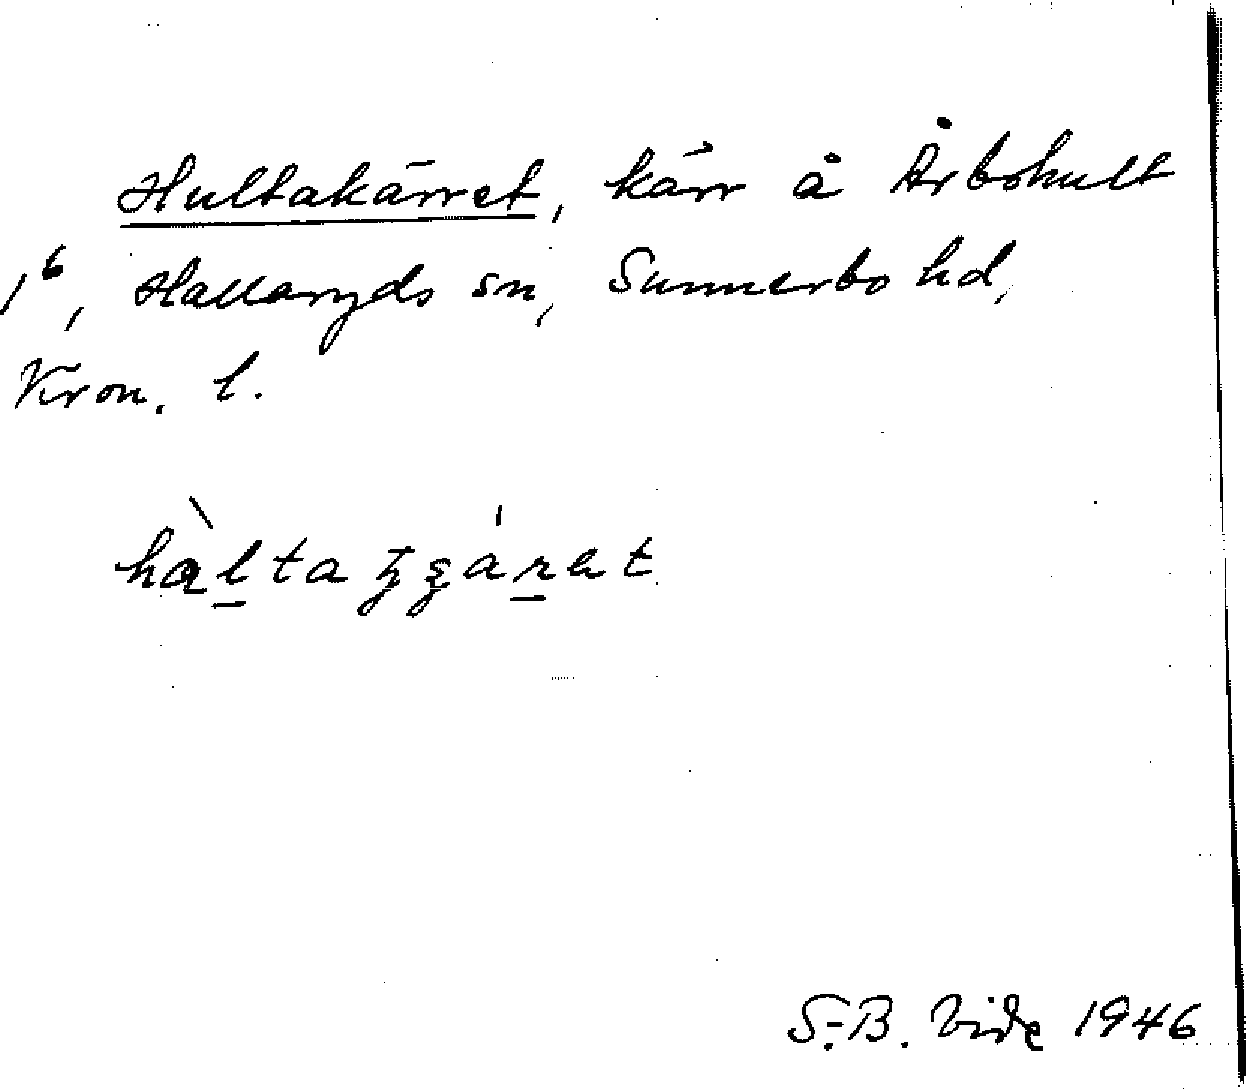 Hultakärret, kärr å Årbohult
1⁶, Hallaryds sn, Sunnerbo hd,
Kron. l.
S.-B. Vide 1946